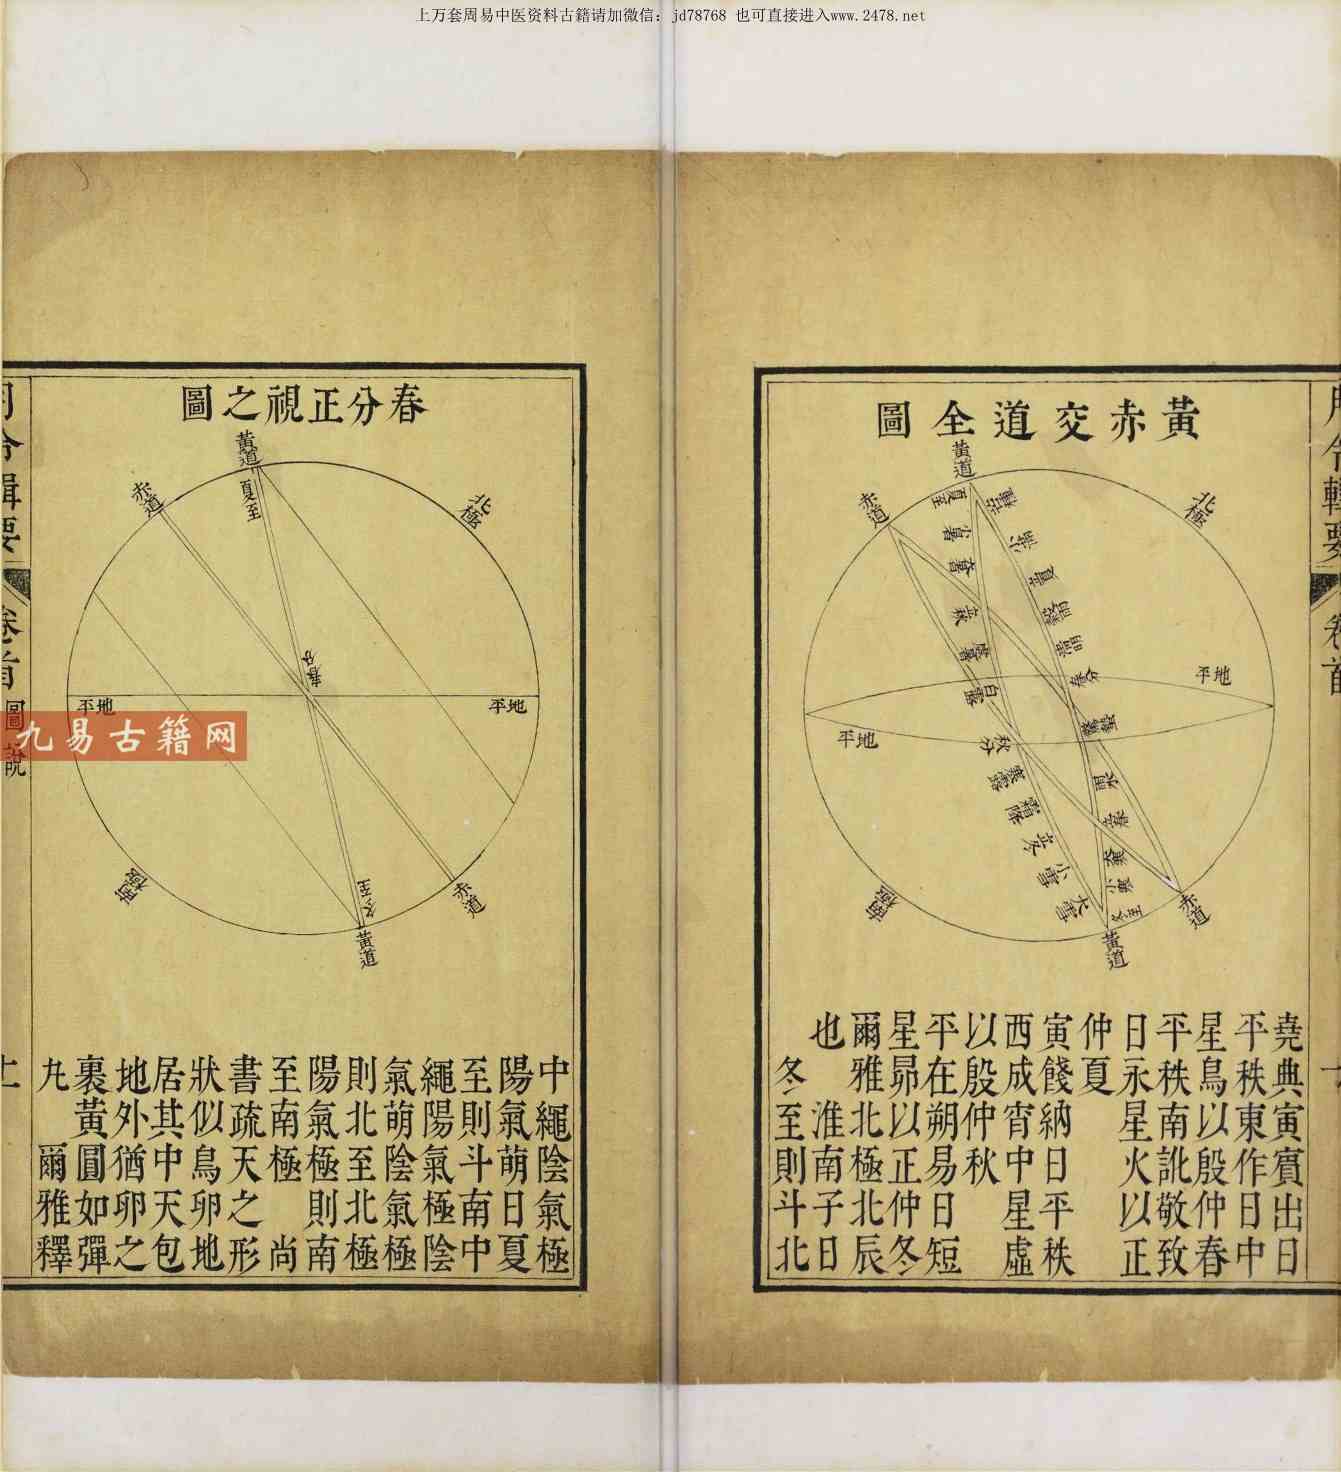 上万套周易中医资料古籍请加微信：jd78768 也可直接进入www.2478.net
黃赤交道全圖
黃道
赤道
北極
夏至
小暑
立秋
白露
秋分
寒露
霜降
立冬
小雪
大雪
冬至
地平
地平
南極
赤道
黃道
堯典寅賓出日
平秩東作日中
星鳥以殷仲春
平秩南訛敬致
日永星火以正
仲夏
寅餞納日 平秩
西成宵中星虛
以殷仲秋
平在朔易日短
星昴以正仲冬
爾雅北極北辰
也 淮南子日
冬至則斗北
春分正視之圖
黃道
夏至
赤道
北極
春分
地平
地平
冬至
南極
赤道
黃道
中繩陰氣極
陽氣萌日夏
至則斗南中
繩陽氣極陰
氣萌陰氣極
則北至北極
陽氣極則南
至南極 尚
書疏天之形
狀似鳥卵地
居其中天包
地外猶卵之
裹黃圓如彈
丸 爾雅釋
圖說
九易古籍网